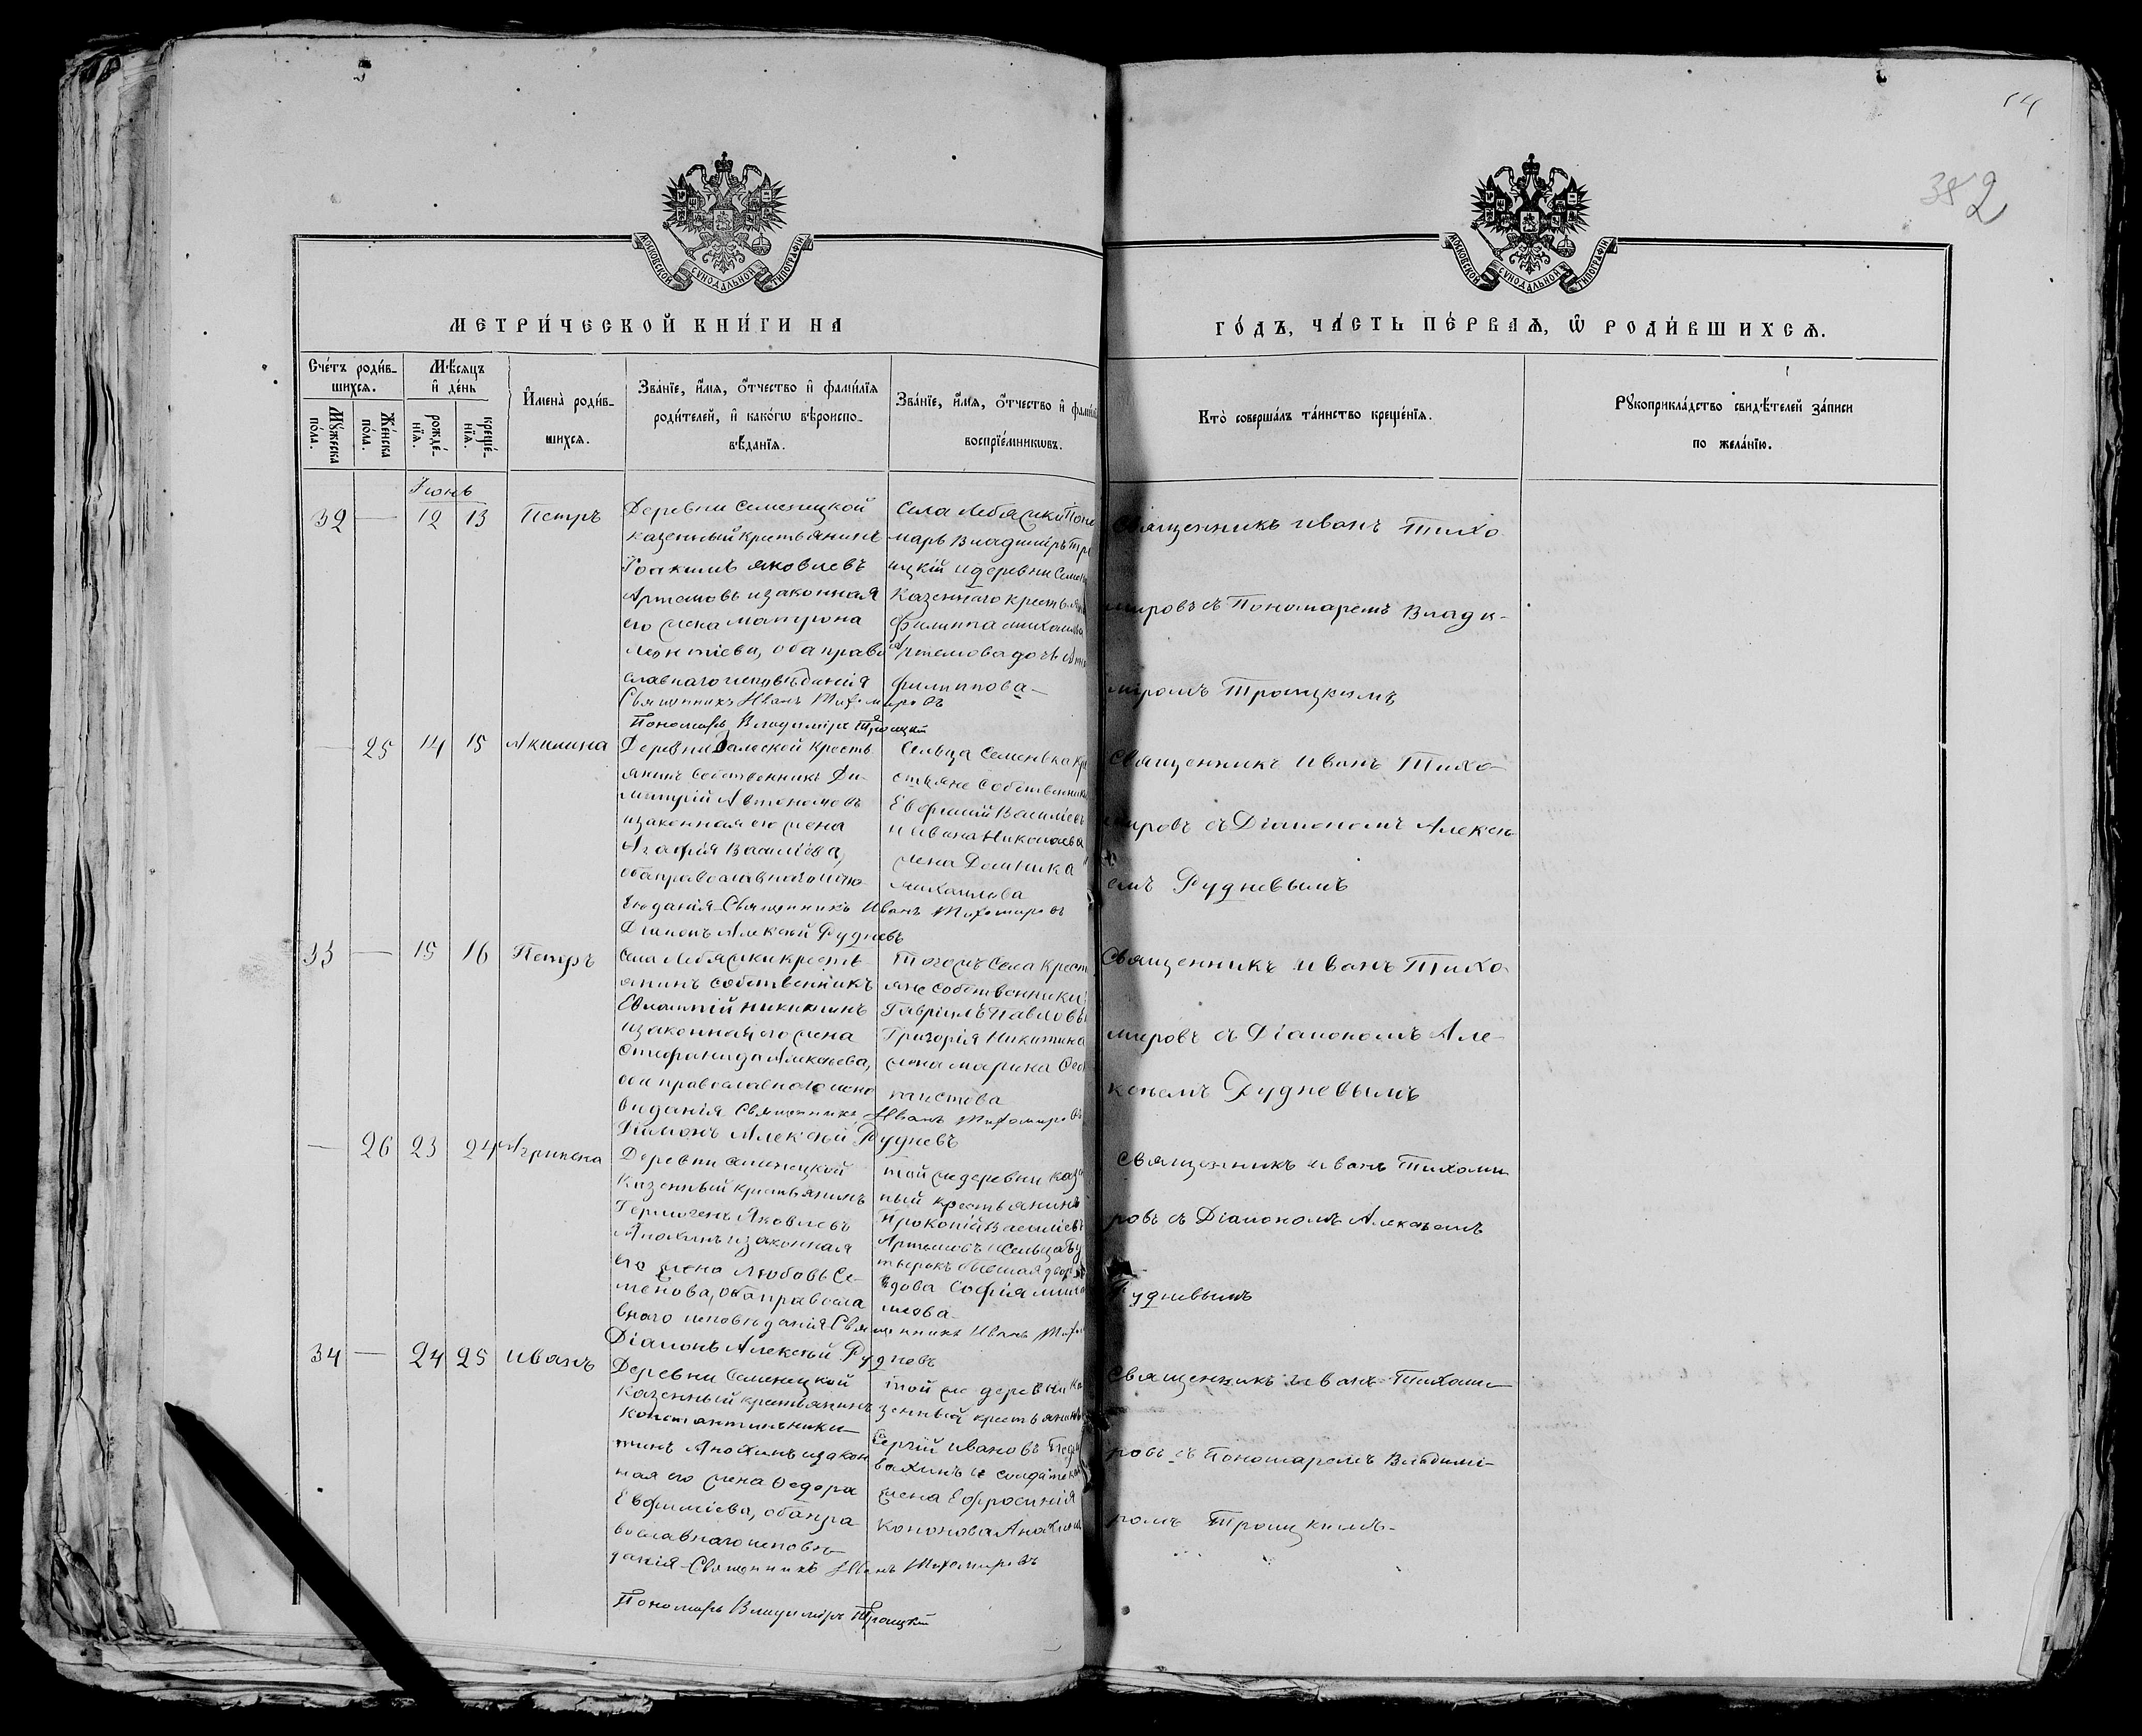 14
382
МОСКОВСКОЙ СѴНОДАЛЬНОЙ ТИПОГРАФІИ
МОСКОВСКОЙ СѴНОДАЛЬНОЙ ТИПОГРАФІИ
МЕТРИ́ЧЕСКОЙ КНИ́ГИ НА
ГО́ДЪ, ЧА́СТЬ ПЕ́РВАѦ, Ѽ РОДИ́ВШИХСѦ.
Сче́тъ роди́в-
шихсѧ.
Мѣ́сяцъ
и҆ де́нь
И҆мена̀ роди́в-
шихсѧ.
Зва́нїе, и҆́мѧ, ѻ҆́тчество и҆ фами́лїѧ
роди́телей, и҆ како́гѡ вѣ̀роиспо-
вѣ́данїѧ.
Зва́нїе, и҆́мѧ, ѻ҆́тчество и҆ фами́
воспрїе́мникѡвъ.
Кто̀ соверша́лъ та́инство креще́нїѧ.
Рꙋкоприкла́дство свидѣ́телей за́писи
по жела́нїю.
Мꙋ́жеска
по́ла.
Же́нска
по́ла.
рожде́-
нїѧ.
креще́-
нїѧ.
Іюнь
32 — 12 13 Петръ
Деревни Семенецкой
казенный крестьянинъ
Іоакимъ Яковлевъ
Артемовъ и законная
его жена Матрона
Леонтіева, оба право
славнаго исповѣданія
Священникъ Иванъ Тихомировъ
Пономарь Владиміръ Троицкій
Села Лебяжки Поно
марь Владиміръ Тро
ицкій и деревни Семен
Казеннаго крестьяни
Филиппа Михаилова
Артемова дочь
Филиппова —
Священникъ Иванъ Тихо
мировъ съ Пономаремъ Влади-
міромъ Троицкимъ
— 25 14 15 Акилина
Деревни Залеской кресть
янинъ собственникъ Ди-
митрій Автономовъ
и законная его жена
Агафія Василіева,
оба православнаго испо-
вѣданія Священникъ Иванъ Тихомировъ
Діаконъ Алексѣй Рудневъ
Сельца Семенька кре
стьяне собственники
Евфимій Василіевъ
и Ивана Николаева
жена Домника
Михаилова
Священникъ Иванъ Тихо-
мировъ съ Діакономъ Алексѣ
емъ Рудневымъ
33 — 15 16 Петръ
Села Лебяжки кресть-
янинъ собственникъ
Евлампій Никитинъ
и законная его жена
Стефанида Алексѣева,
оба православнаго испо
виданія Священникъ Иванъ Тихомировъ
Діаконъ Алексѣй Рудневъ
Тогожъ Села крест
яне собственники
Гавріилъ Павловъ и
Григорія Никитина
жена Марина Фео
ктистова
Священникъ Иванъ Тихо-
мировъ съ Діакономъ Але-
ксѣемъ Рудневымъ
— 26 23 24 Агрипена
Деревни Семенецкой
Казенный крестьянинъ
Гермогенъ Яковлевъ
Анохинъ и законная
его жена Любовь Се-
менова, оба правосла
внаго исповѣданія Священникъ Иванъ Тихо
Діаконъ Алексѣй Рудневъ
той же деревни казен
ный крестьянинъ
Прокопій Василіевъ
Артемовъ и Сельца Бу
тырокъ бывшая двор
вдова Софія Миха
илова-
Священникъ Иванъ Тихоми
ровъ съ Діакономъ Алексѣемъ
Рудневымъ
34 — 24 25 Иванъ
Деревни Семенецкой
Казенный крестьянинъ
Константинъ Ники-
тинъ Анохинъ и закон
ная его жена Федора
Евфиміева, оба пра
вославнаго исповѣ-
данія – Священникъ Иванъ Тихомировъ
Пономарь Владиміръ Троицкій
той же деревни ка
зенный крестьянинъ
Сергій Ивановъ
и солдатска
жена Ефросинія
Кононова Анохина
Священникъ Иванъ Тихоми-
ровъ съ Пономаремъ Владимі-
ромъ Троицкимъ-